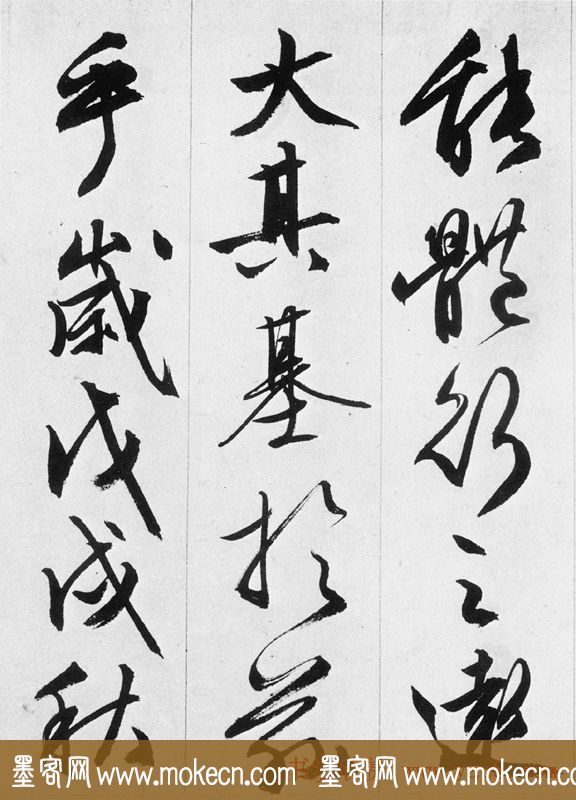 能體之
大其基於
乎歲戊戌秋
墨客网 www.mokecn.com 墨客网 www.mokecn.com